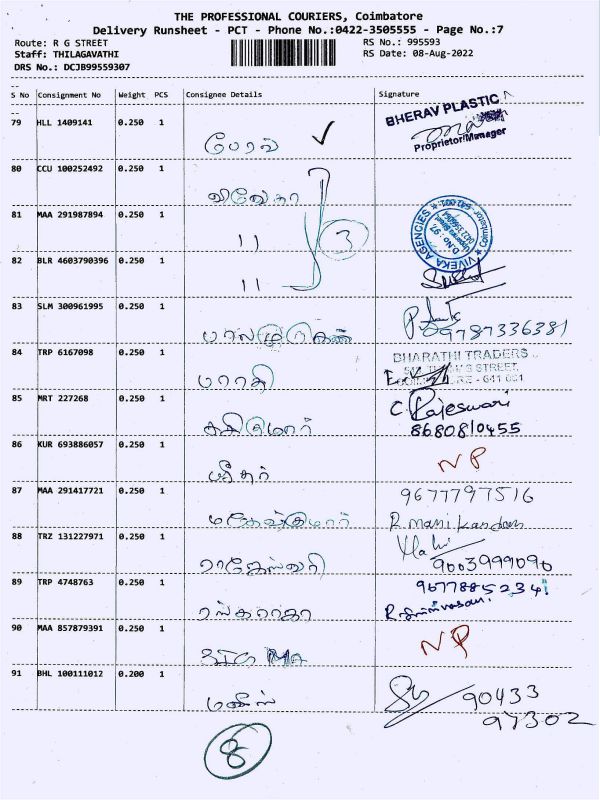 THE PROFESSIONAL COURIERS, Coimbatore
Delivery Runsheet - PCT - Phone No.:0422-3505555 - Page No.:7
Route: R G STREET RS No.: 995593
Staff: THILAGAVATHI RS Date: 08-Aug-2022
DRS No.: DCJB99559307
S No Consignment No Weight PCS Consignee Details Signature
79 HLL 1409141 0.250 1 BHERAV PLASTIC
Proprietor/Manager
80 CCU 100252492 0.250 1
விவேகா
81 MAA 291987894 0.250 1
11 3 VIVEKA AGENCIES
82 BLR 4603790396 0.250 1
11
83 SLM 300961995 0.250 1
பாலமுருகன் 9787336381
84 TRP 6167098 0.250 1 BHARATHI TRADERS
பாரதி
85 MRT 227268 0.250 1 C. Rajeswari
8680810455
86 KUR 693886057 0.250 1 NP
ஸ்ரீதர்
87 MAA 291417721 0.250 1 9677797516
மகேஷ்குமார் R. Manikandan
88 TRZ 131227971 0.250 1
ராஜேஸ்வரி 9003999090
89 TRP 4748763 0.250 1 9677885234
ரங்கராஜா R. Srinivasan
90 MAA 857879391 0.250 1 NP
91 BHL 100111012 0.200 1 90433
மனிஷ் 97302
8